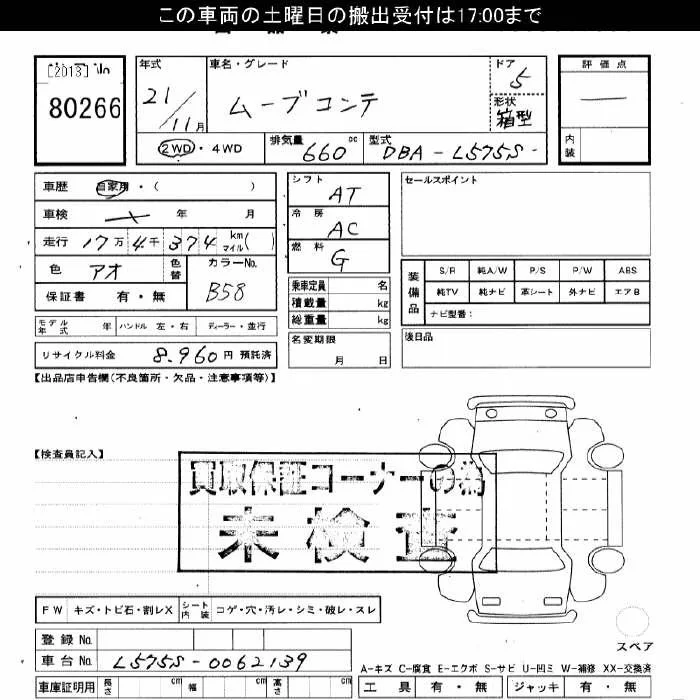 この車両の土曜日の搬出受付は17:00まで
[2013]
80266
年式
21/11月
車名・グレード
ムーブコンテ
ドア
5
形状
箱型
評価点
—
内装
2WD・4WD
排気量
660 cc
型式
DBA-L575S-
車歴 自家用・( )
車検 年 月
走行 17万 4千 374 km マイル( )
色 アオ 色替
カラーNo.
B58
保証書 有・無
シフト
AT
冷房
AC
燃料
G
セールスポイント
乗車定員 名
積載量 kg
総重量 kg
装備品
S/R 純A/W P/S P/W ABS
純TV 純ナビ 革シート 外ナビ エアB
ナビ型番:
モデル年式 年 ハンドル 左・右 ディーラー・並行
名変期限
月 日
後日品
リサイクル料金 8,960 円 預託済
【出品店申告欄(不良箇所・欠品・注意事項等)】
【検査員記入】
買取保証コーナーの為
未検査
FW キズ・トビ石・割レX シート内装 コゲ・穴・汚レ・シミ・破レ・スレ
スペア
登録No.
車台No. L575S-0062139
A-キズ C-腐食 E-エクボ S-サビ U-凹ミ W-補修 XX-交換済
車庫証明用 長さ cm 幅 cm 高さ cm
工具 有・無 ジャッキ 有・無